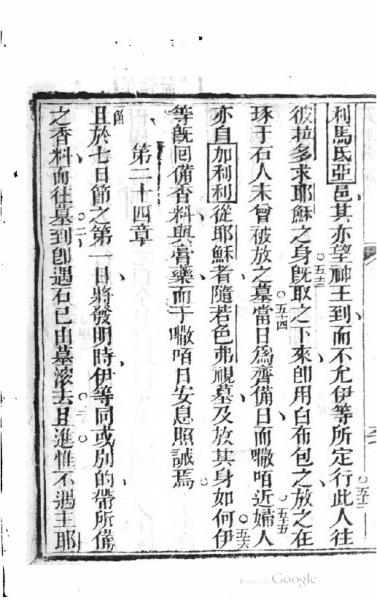 利馬氏亞邑其亦望神王到而不允伊等所定行此人往
○五二
彼拉多求耶穌之身既取之下來即用白布包之放之在
○五三
琢于石人未曾被放之墓當日為齊備日而㘔咟近婦人
○五四
○五五
亦自加利利從耶穌者隨若色弗視墓及放其身如何伊
○五六
等既回備香料與膏藥而于㘔咟日安息照誡焉
第二十四章
節
且於七日節之第一日將發明時伊等同或別的帶所備
之香料而往墓到即遇石已由墓滾去且進惟不遇主耶
○二
○三
Google